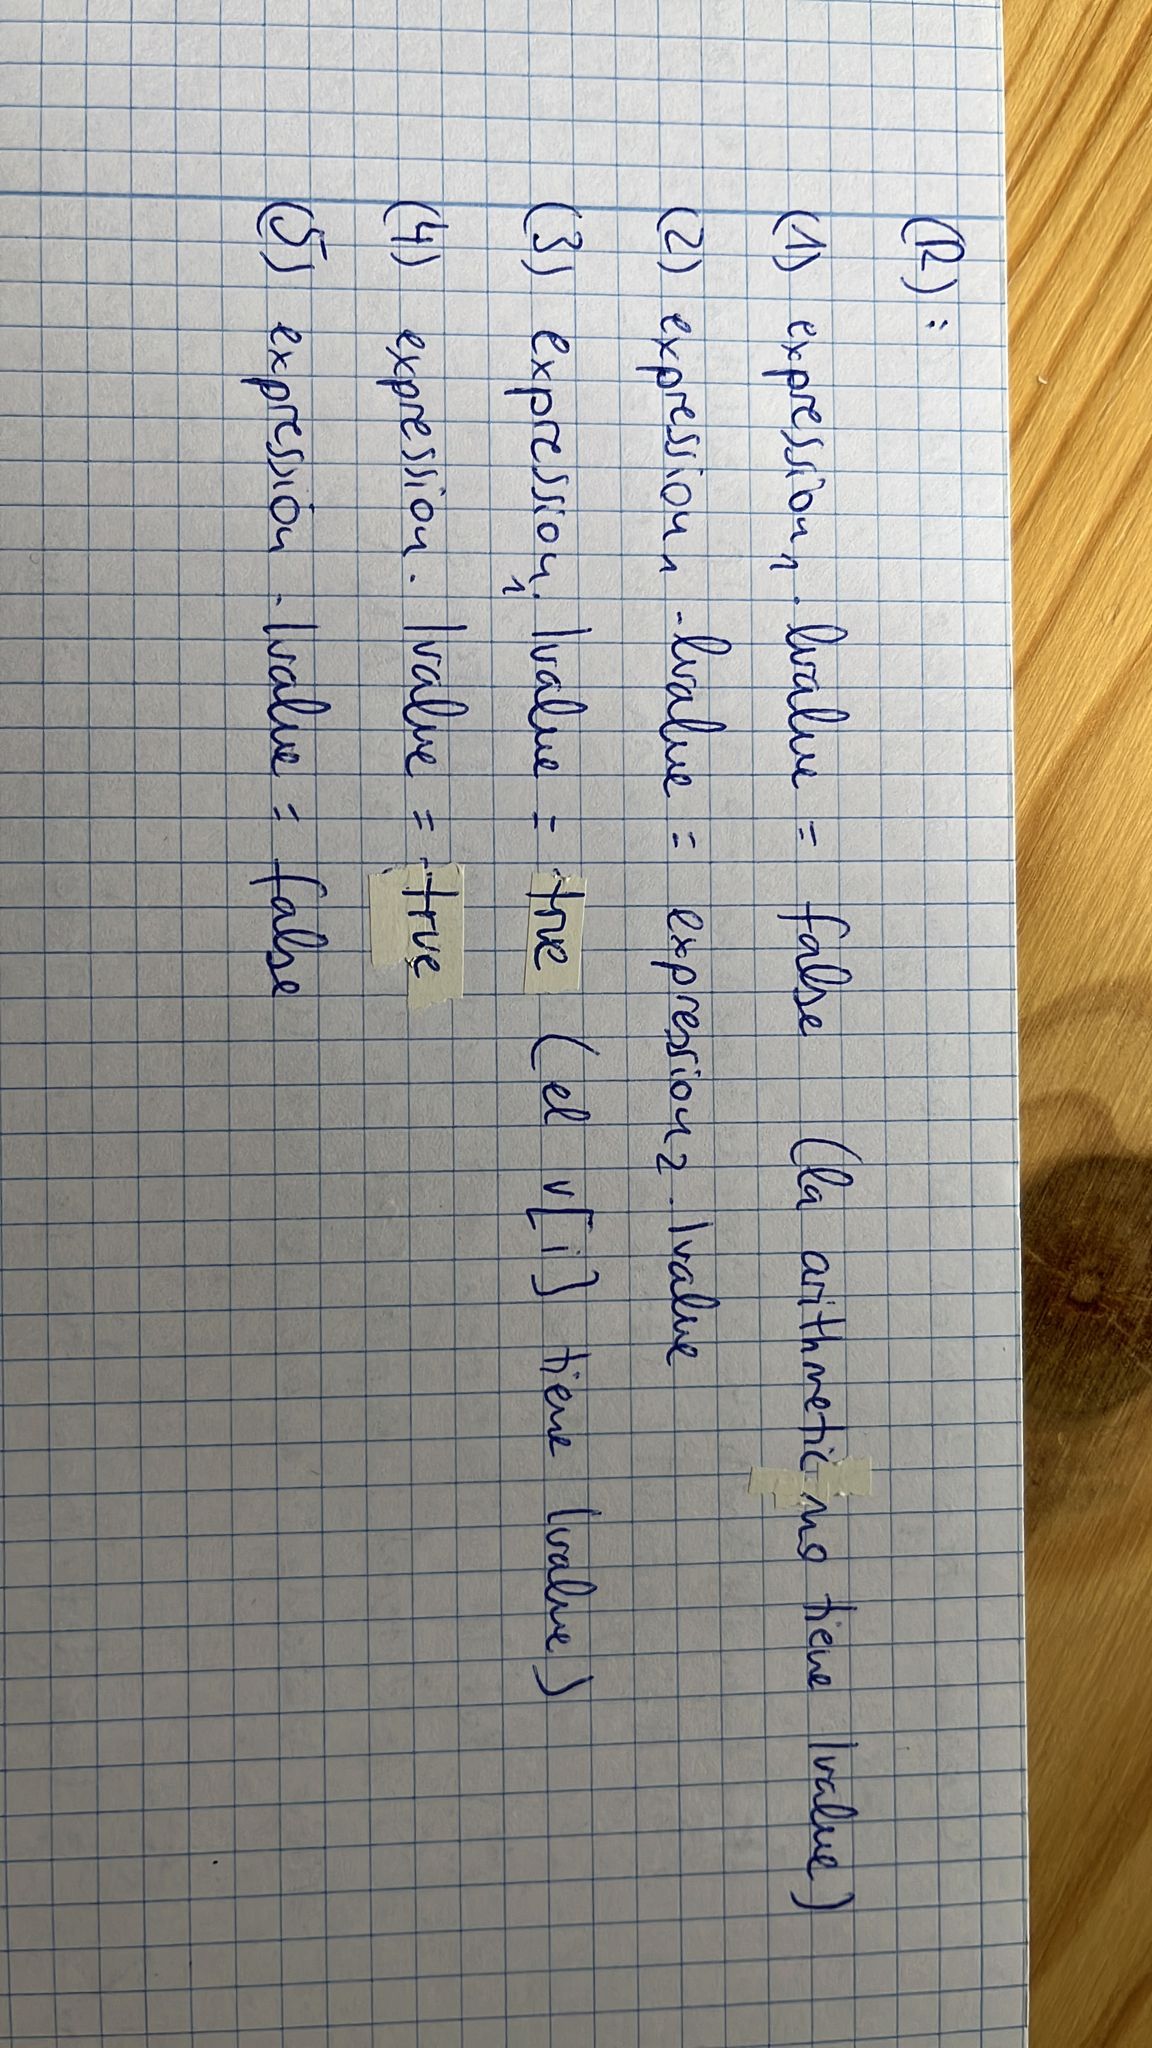 (R) :
(1) expression₁ . lvalue = false (la arithmetic no tiene lvalue)
(2) expression₁ . lvalue = expression₂ . lvalue
(3) expression₁ . lvalue = true (el v[i] tiene lvalue)
(4) expression . lvalue = true
(5) expression . lvalue = false